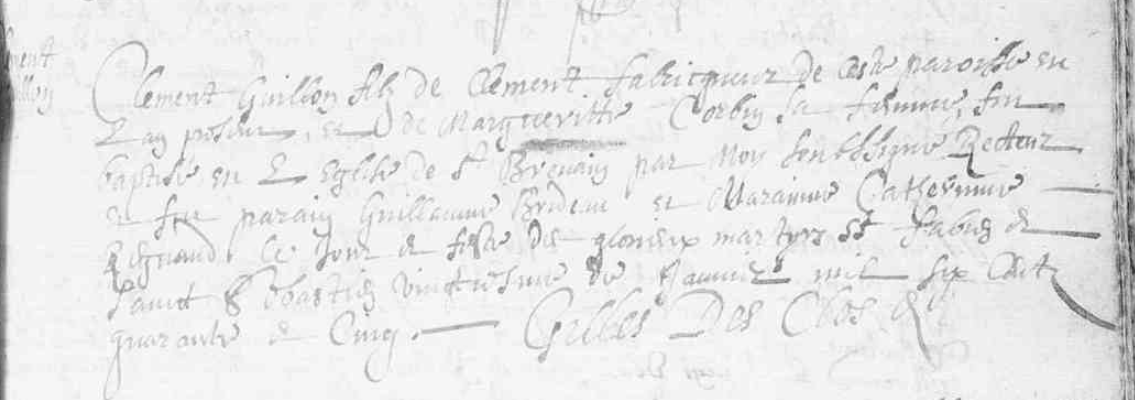 Clement Guillon filz de Clement fabricqueur de ceste paroisse en
L an present, et de Margueritte Corbin sa femme, fut
baptise en L Eglise de St Brevain par Moy soubssigne Recteur
et fut parain Guillaume Brideau et Maraine Catherinne
Regnaud. Ce Jour et feste des glorieux martyrs St Fabien et
Sainct Sebastien vingtiesme de Januier mil six Centz
quarante et Cinq. Gilles Des Clos